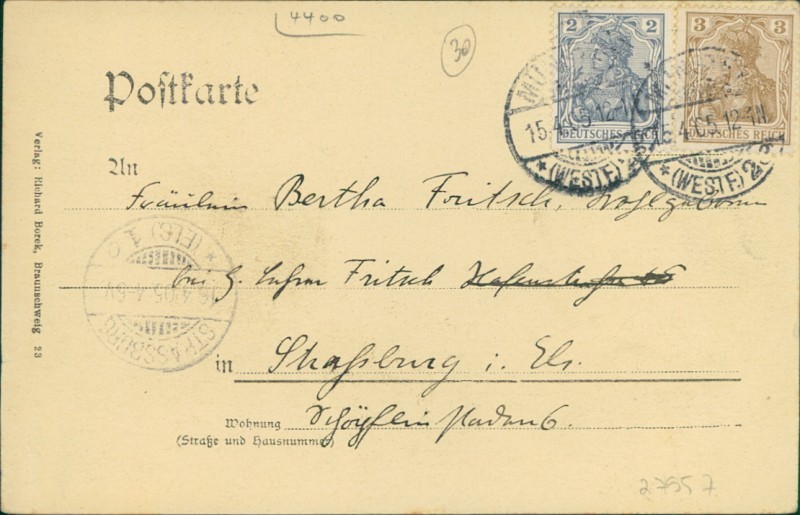 4400
30
2 2
3 3
DEUTSCHES REICH
DEUTSCHES REICH
MÜNSTER
15.4.05.12-1N
*(WESTF.)
(WESTF.) 2
Postkarte
An
Fräulein Bertha Fritsch, Wohlgeboren
bei H. Fritsch
in Straßburg i. Els.
Wohnung Schöpflinstaden 6.
(Straße und Hausnummer)
STRASSBURG
16.4.05.4-5V
* (ELS) 1 c
Verlag: Richard Borek, Braunschweig 23
27557